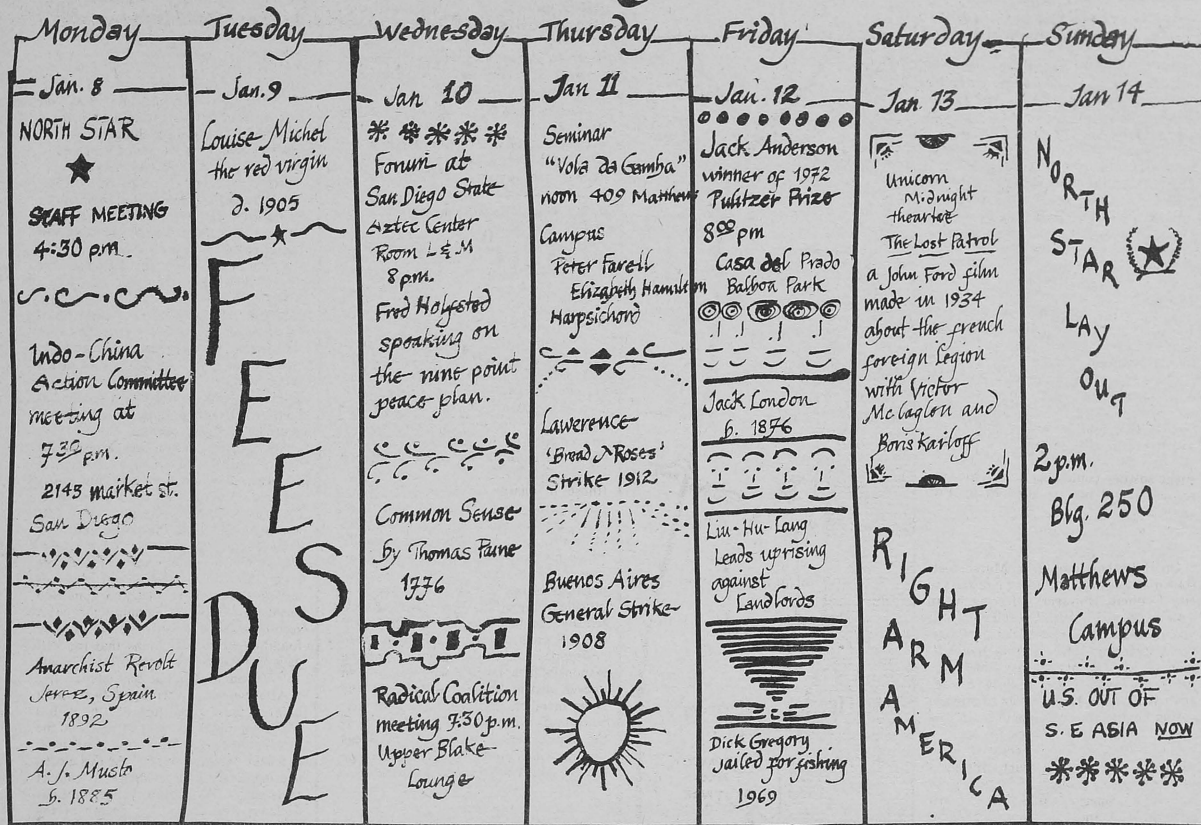 Monday
Jan. 8
NORTH STAR
STAFF MEETING
4:30 p.m.
Indo-China
Action Committee
meeting at
7:30 p.m.
2143 market st.
San Diego
Anarchist Revolt
Jerez, Spain
1892
A. J. Muste
b. 1885
Tuesday
Jan. 9
Louise Michel
the red virgin
d. 1905
FEES
DUE
Wednesday
Jan 10
Forum at
San Diego State
Aztec Center
Room L & M
8 p.m.
Fred Holfsted
speaking on
the nine point
peace plan.
Common Sense
by Thomas Paine
1776
Radical Coalition
meeting 7:30 p.m.
Upper Blake
Lounge
Thursday
Jan 11
Seminar
"Vola da Gamba"
noon 409 Matthews
Campus
Peter Farell
Elizabeth Hamilton
Harpsichord
Lawerence
'Bread N Roses'
Strike 1912
Buenos Aires
General Strike
1908
Friday
Jan. 12
Jack Anderson
winner of 1972
Pulitzer Prize
8:00 pm
Casa del Prado
Balboa Park
Jack London
b. 1876
Liu-Hu-Lang
Leads uprising
against
Landlords
Dick Gregory
Jailed for fishing
1969
Saturday
Jan 13
Unicorn
Midnight
theartee
The Lost Patrol
a John Ford film
made in 1934
about the french
foreign legion
with Victor
McCaglen and
Boris Karloff
RIGHT
ARM
AMERICA
Sunday
Jan 14
NORTH
STAR
LAY
OUT
2 p.m.
Blg. 250
Matthews
Campus
U.S. OUT OF
S. E ASIA NOW